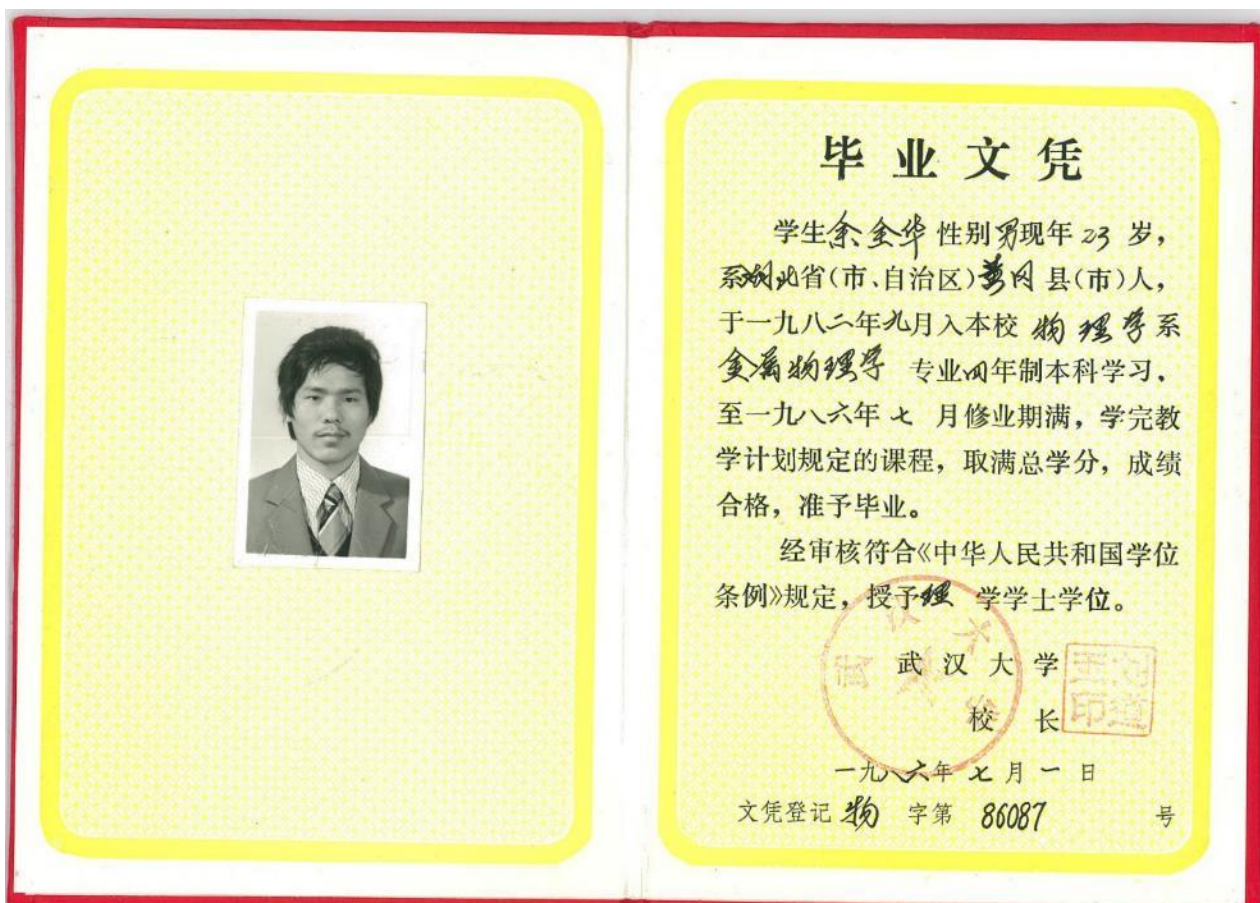 毕业文凭
学生余金华性别男现年23岁，
系湖北省(市、自治区)黄冈县(市)人，
于一九八二年九月入本校物理学系
金属物理学 专业四年制本科学习，
至一九八六年七月修业期满，学完教
学计划规定的课程，取满总学分，成绩
合格，准予毕业。
经审核符合《中华人民共和国学位
条例》规定，授予理学学士学位。
武汉大学
武汉大学
校长
刘道玉印
一九八六年七月一日
文凭登记物字第86087号